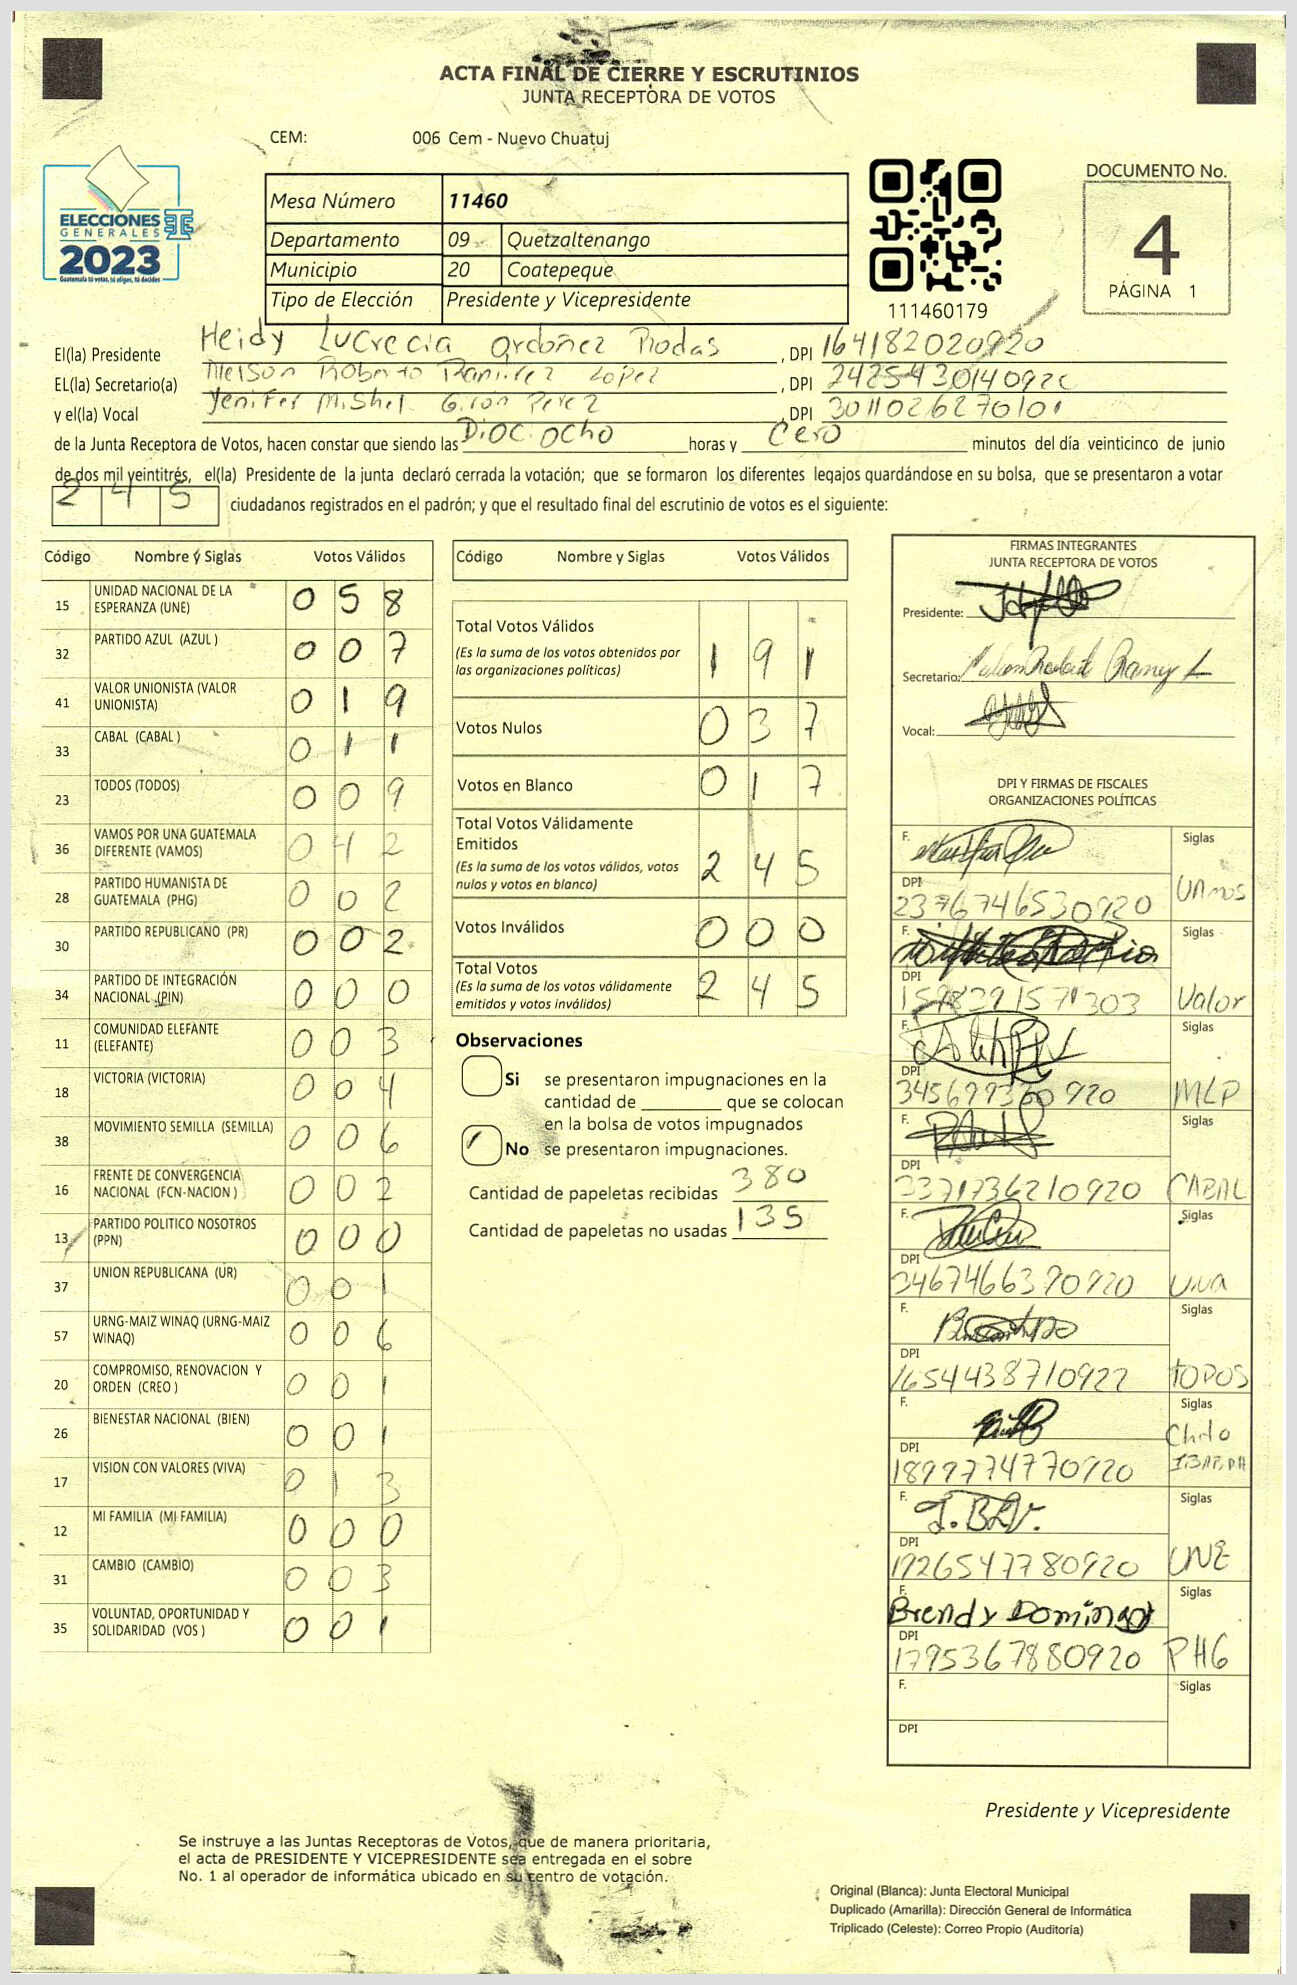 ACTA FINAL DE CIERRE Y ESCRUTINIOS
JUNTA RECEPTORA DE VOTOS
CEM: 006 Cem - Nuevo Chuatuj
ELECCIONES
GENERALES
2023
Guatemala tú votas, tú eliges, tú decides
Mesa Número 11460
Departamento 09 Quetzaltenango
Municipio 20 Coatepeque
Tipo de Elección Presidente y Vicepresidente
111460179
DOCUMENTO No.
4
PÁGINA 1
El(la) Presidente Heidy Lucrecia Ordoñez Rodas , DPI 164182020920
EL(la) Secretario(a) Nelson Roberto Ramirez Lopez , DPI
y el(la) Vocal Yenifer Mishel Girón Perez , DPI 3011026270101
de la Junta Receptora de Votos, hacen constar que siendo las Dioc.ocho horas y Cero minutos del día veinticinco de junio
de dos mil veintitrés, el(la) Presidente de la junta declaró cerrada la votación; que se formaron los diferentes legajos quardándose en su bolsa, que se presentaron a votar
2 4 5 ciudadanos registrados en el padrón; y que el resultado final del escrutinio de votos es el siguiente:
Código Nombre y Siglas Votos Válidos
15 UNIDAD NACIONAL DE LA ESPERANZA (UNE) 0 5 8
32 PARTIDO AZUL (AZUL ) 0 0 7
41 VALOR UNIONISTA (VALOR UNIONISTA) 0 1 9
33 CABAL (CABAL ) 0 1 1
23 TODOS (TODOS) 0 0 9
36 VAMOS POR UNA GUATEMALA DIFERENTE (VAMOS) 0 4 2
28 PARTIDO HUMANISTA DE GUATEMALA (PHG) 0 0 2
30 PARTIDO REPUBLICANO (PR) 0 0 2
34 PARTIDO DE INTEGRACIÓN NACIONAL (PIN) 0 0 0
11 COMUNIDAD ELEFANTE (ELEFANTE) 0 0 3
18 VICTORIA (VICTORIA) 0 0 4
38 MOVIMIENTO SEMILLA (SEMILLA) 0 0 6
16 FRENTE DE CONVERGENCIA NACIONAL (FCN-NACION ) 0 0 2
13 PARTIDO POLITICO NOSOTROS (PPN) 0 0 0
37 UNION REPUBLICANA (UR) 0 0 1
57 URNG-MAIZ WINAQ (URNG-MAIZ WINAQ) 0 0 6
20 COMPROMISO, RENOVACION Y ORDEN (CREO ) 0 0 1
26 BIENESTAR NACIONAL (BIEN) 0 0 1
17 VISION CON VALORES (VIVA) 0 1 3
12 MI FAMILIA (MI FAMILIA) 0 0 0
31 CAMBIO (CAMBIO) 0 0 3
35 VOLUNTAD, OPORTUNIDAD Y SOLIDARIDAD (VOS ) 0 0 1
Código Nombre y Siglas Votos Válidos
Total Votos Válidos 1 9 1
(Es la suma de los votos obtenidos por
las organizaciones políticas)
Votos Nulos 0 3 7
Votos en Blanco 0 1 7
Total Votos Válidamente
Emitidos
(Es la suma de los votos válidos, votos
nulos y votos en blanco) 2 4 5
Votos Inválidos 0 0 0
Total Votos
(Es la suma de los votos válidamente
emitidos y votos inválidos) 2 4 5
Observaciones
Si se presentaron impugnaciones en la
cantidad de ________ que se colocan
en la bolsa de votos impugnados
No se presentaron impugnaciones.
Cantidad de papeletas recibidas 380
Cantidad de papeletas no usadas 135
FIRMAS INTEGRANTES
JUNTA RECEPTORA DE VOTOS
Presidente:
Secretario:
Vocal:
DPI Y FIRMAS DE FISCALES
ORGANIZACIONES POLÍTICAS
F. Siglas
DPI 2376746530920 VAMOS
F. Siglas
DPI 1598391571303 Valor
F. Siglas
DPI MLP
F. Siglas
DPI 3371736210920 CABAL
F. Siglas
DPI 3467466390920 Viva
F. Siglas
DPI 1654438710922 TODOS
F. Siglas
DPI 1899774770920
F. J.BLV. Siglas
DPI 1926547780920 UNE
F. Brendy Domingo Siglas
DPI 1795367880920 PHG
F. Siglas
DPI
Presidente y Vicepresidente
Se instruye a las Juntas Receptoras de Votos, que de manera prioritaria,
el acta de PRESIDENTE Y VICEPRESIDENTE sea entregada en el sobre
No. 1 al operador de informática ubicado en su centro de votación.
Original (Blanca): Junta Electoral Municipal
Duplicado (Amarilla): Dirección General de Informática
Triplicado (Celeste): Correo Propio (Auditoría)